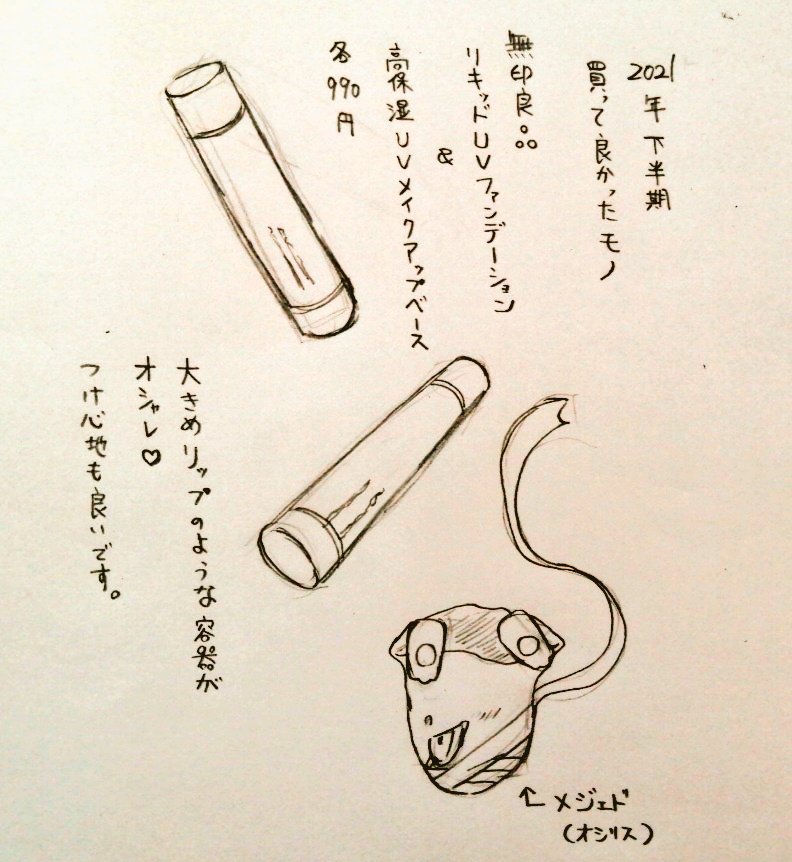 2021年下半期
買って良かったモノ
無印良品
リキッドUVファンデーション
&
高保湿UVメイクアップベース
各990円
大きめリップのような容器が
オシャレ♡
つけ心地も良いです。
メジェド
(オシリス)